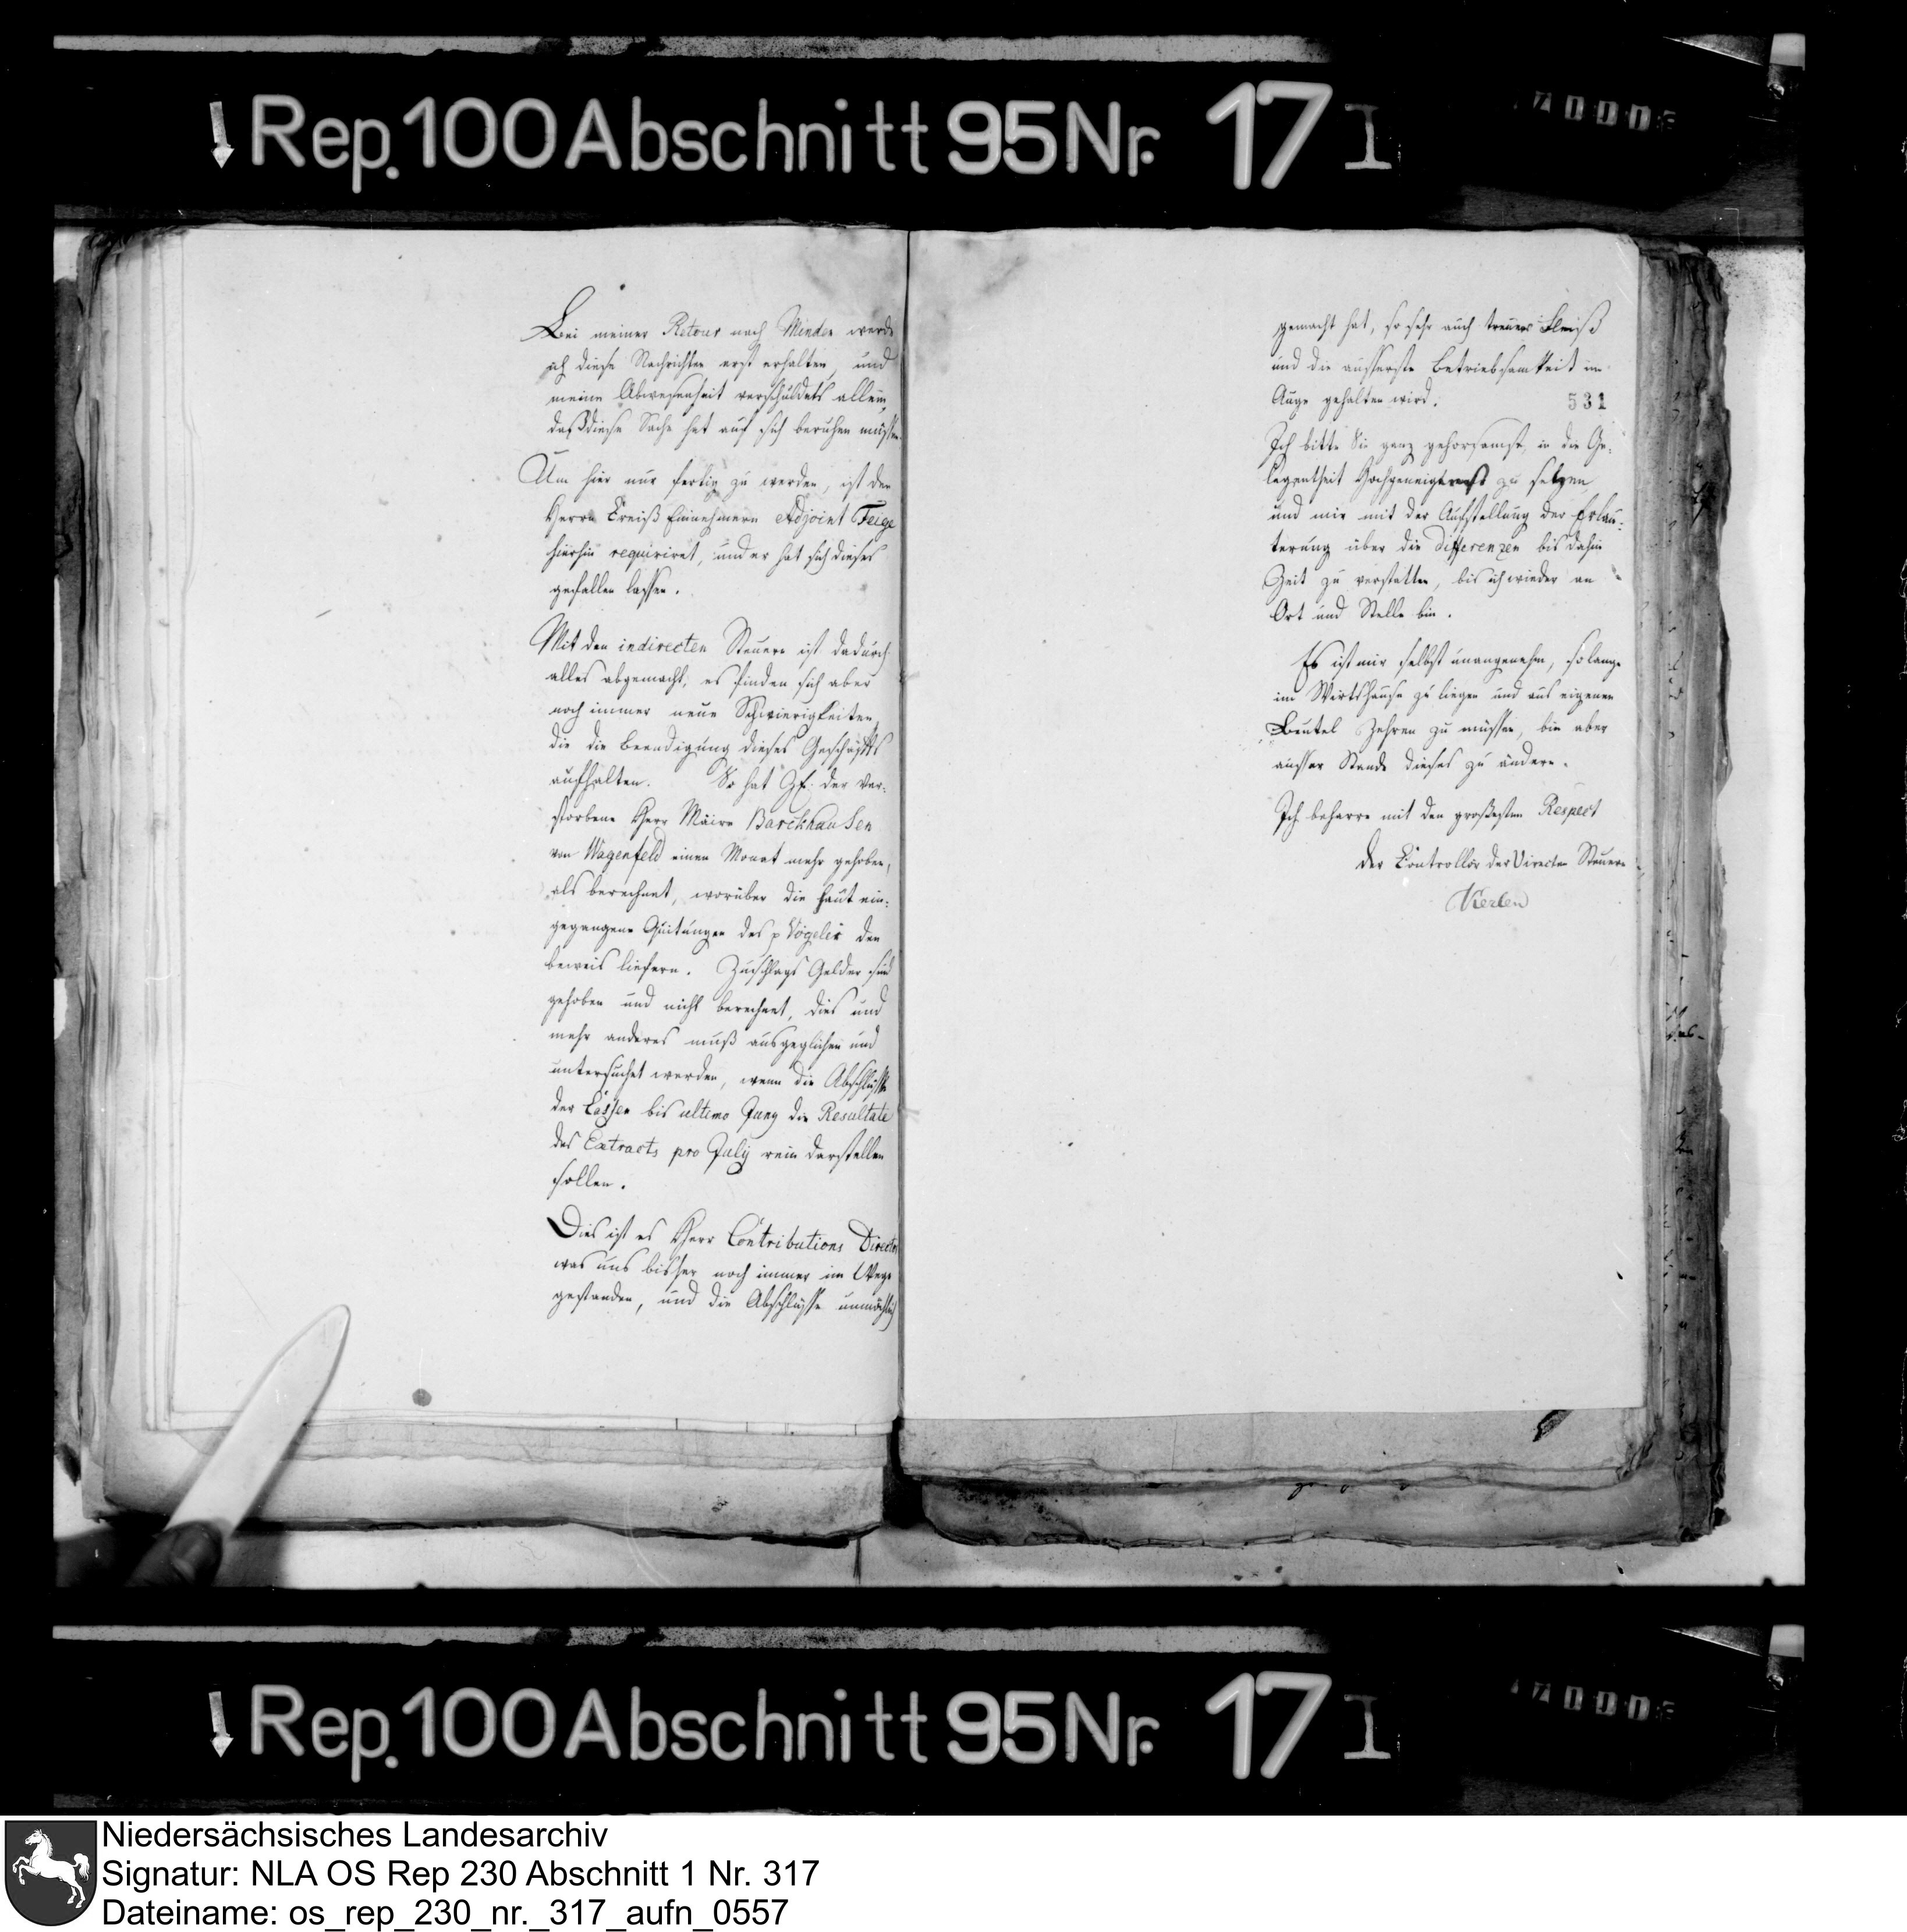 Rep. 100 Abschnitt 95 Nr. 17 I
Bei meiner Retour nach Minden werde
ich diese Nachrichten erst erhalten, und
meine Abwesenheit verschuldets allein,
daß diese Sache hat auf sich beruhen müssen.
Um hier nur fertig zu werden, ist der
Herrn Creiß Einnehmern Adjoint Feige
hierhin requiriret, und er hat sich dieses
gefallen lassen.
Mit den indirecten Steuern ist dadurch
alles abgemacht; es finden sich aber
noch immer neue Schwierigkeiten,
die die Beendigung dieses Geschäfts
aufhalten. So hat der ver-
storbene Herr Maire Barckhausen
von Wagenfeld einen Monat mehr gehoben,
als berechnet, worüber die heut ein-
gegangene Quitungen des p Vogeler den
beweis liefern. Zuschlags Gelder sind
gehoben und nicht berechnet, dies und
mehr anderes muß ausgeglichen und
untersuchet werden, wenn die Abschlüsse
der Cassen bis ultimo Juny die Resultate
des Extracts pro July rein darstellen
sollen.
Dies ist es Herr Contributions Director
was uns bisher noch immer im Wege
gestanden, und die Abschlüsse unmöglich
gemacht hat, so sehr auch treuer Fleiß
und die äusserste Betriebsamkeit im
Auge gehalten wird.
531
Ich bitte Sie ganz gehorsamst, in die Ge-
legenheit Hochgeneigtest zu setzen
und mir mit der Aufstellung der Erläu-
terung über die differenzen bis dahin
Zeit zu verstatten, bis ich wieder an
Ort und Stelle bin.
Es ist mir selbst unangenehm, so lange
im Wirtshause zu liegen und aus eigenen
Beutel Zehren zu müssen, bin aber
ausser Stande dieses zu ändern.
Ich beharre mit den großesten Respect
der Controllor der Directen Steuern
Rep. 100 Abschnitt 95 Nr. 17 I
Niedersächsisches Landesarchiv
Signatur: NLA OS Rep 230 Abschnitt 1 Nr. 317
Dateiname: os_rep_230_nr._317_aufn_0557